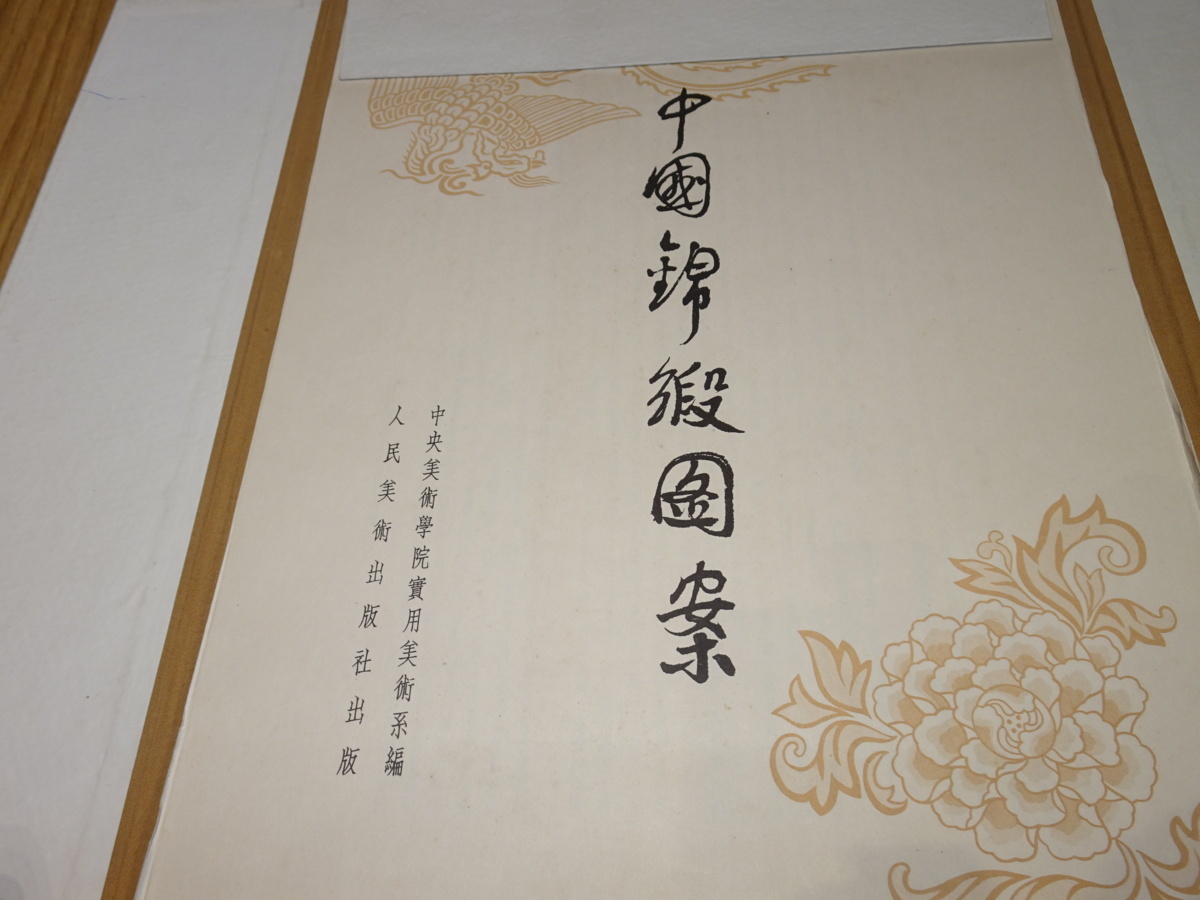 中國錦緞图案
中央美術學院實用美術系編
人民美術出版社出版